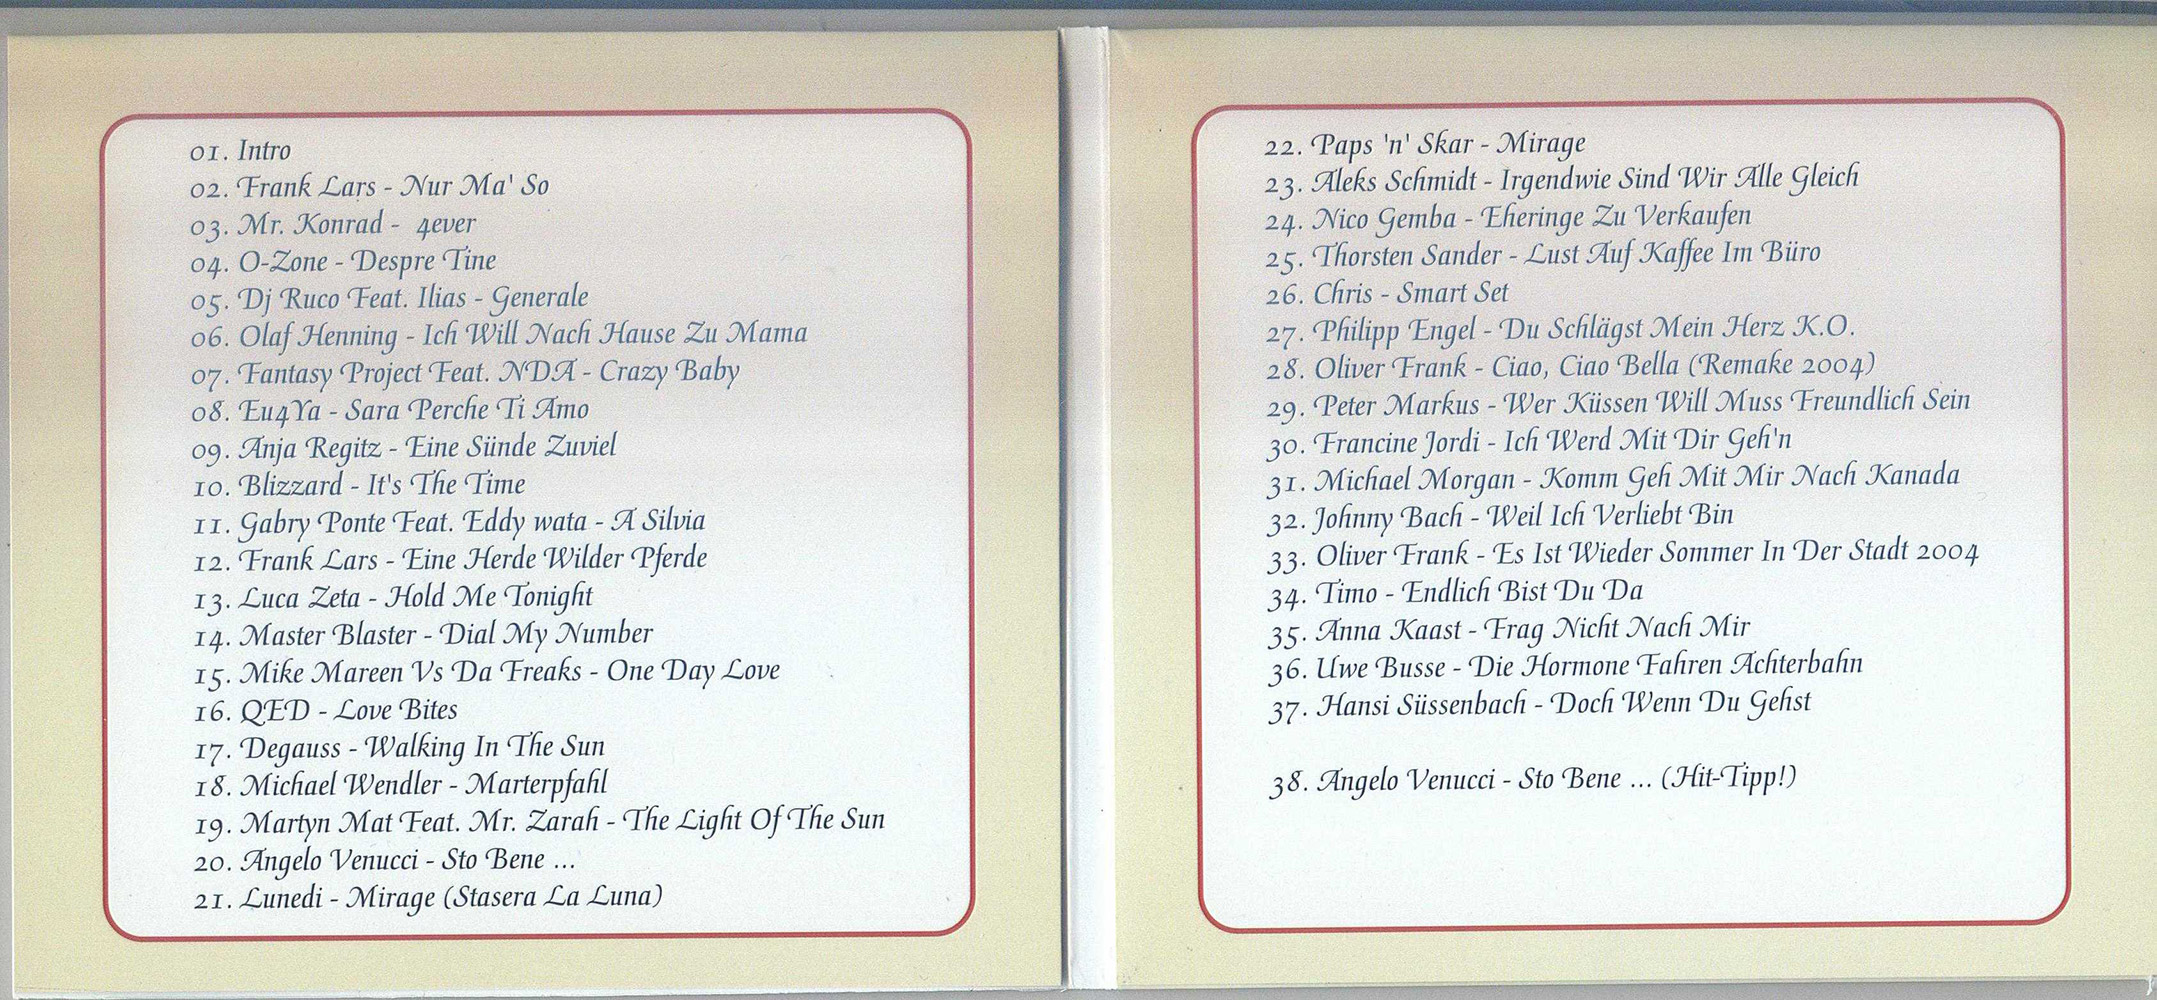 01. Intro
02. Frank Lars - Nur Ma' So
03. Mr. Konrad - 4ever
04. O-Zone - Despre Tine
05. Dj Ruco Feat. Ilias - Generale
06. Olaf Henning - Ich Will Nach Hause Zu Mama
07. Fantasy Project Feat. NDA - Crazy Baby
08. Eu4Ya - Sara Perche Ti Amo
09. Anja Regitz - Eine Sünde Zuviel
10. Blizzard - It's The Time
11. Gabry Ponte Feat. Eddy wata - A Silvia
12. Frank Lars - Eine Herde Wilder Pferde
13. Luca Zeta - Hold Me Tonight
14. Master Blaster - Dial My Number
15. Mike Mareen Vs Da Freaks - One Day Love
16. QED - Love Bites
17. Degauss - Walking In The Sun
18. Michael Wendler - Marterpfahl
19. Martyn Mat Feat. Mr. Zarah - The Light Of The Sun
20. Angelo Venucci - Sto Bene ...
21. Lunedi - Mirage (Stasera La Luna)
22. Paps 'n' Skar - Mirage
23. Aleks Schmidt - Irgendwie Sind Wir Alle Gleich
24. Nico Gemba - Eheringe Zu Verkaufen
25. Thorsten Sander - Lust Auf Kaffee Im Büro
26. Chris - Smart Set
27. Philipp Engel - Du Schlägst Mein Herz K.O.
28. Oliver Frank - Ciao, Ciao Bella (Remake 2004)
29. Peter Markus - Wer Küssen Will Muss Freundlich Sein
30. Francine Jordi - Ich Werd Mit Dir Geh'n
31. Michael Morgan - Komm Geh Mit Mir Nach Kanada
32. Johnny Bach - Weil Ich Verliebt Bin
33. Oliver Frank - Es Ist Wieder Sommer In Der Stadt 2004
34. Timo - Endlich Bist Du Da
35. Anna Kaast - Frag Nicht Nach Mir
36. Uwe Busse - Die Hormone Fahren Achterbahn
37. Hansi Süssenbach - Doch Wenn Du Gehst
38. Angelo Venucci - Sto Bene ... (Hit-Tipp!)